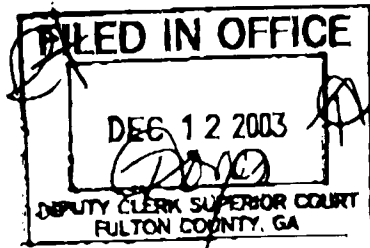 FILED IN OFFICE
DEC 12 2003
DEPUTY CLERK SUPERIOR COURT
FULTON COUNTY, GA